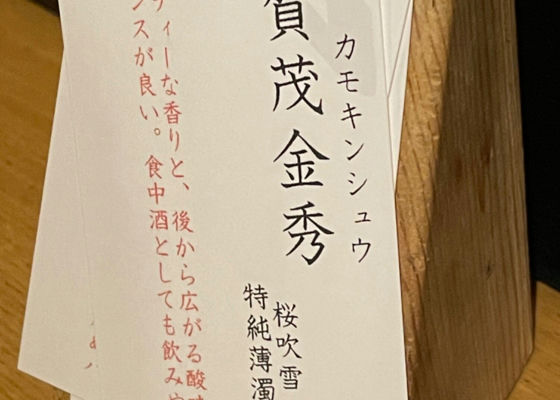 カモキンシュウ
賀茂金秀
桜吹雪
特純薄濁
ティーな香りと、後から広がる酸味
ンスが良い。食中酒としても飲みや